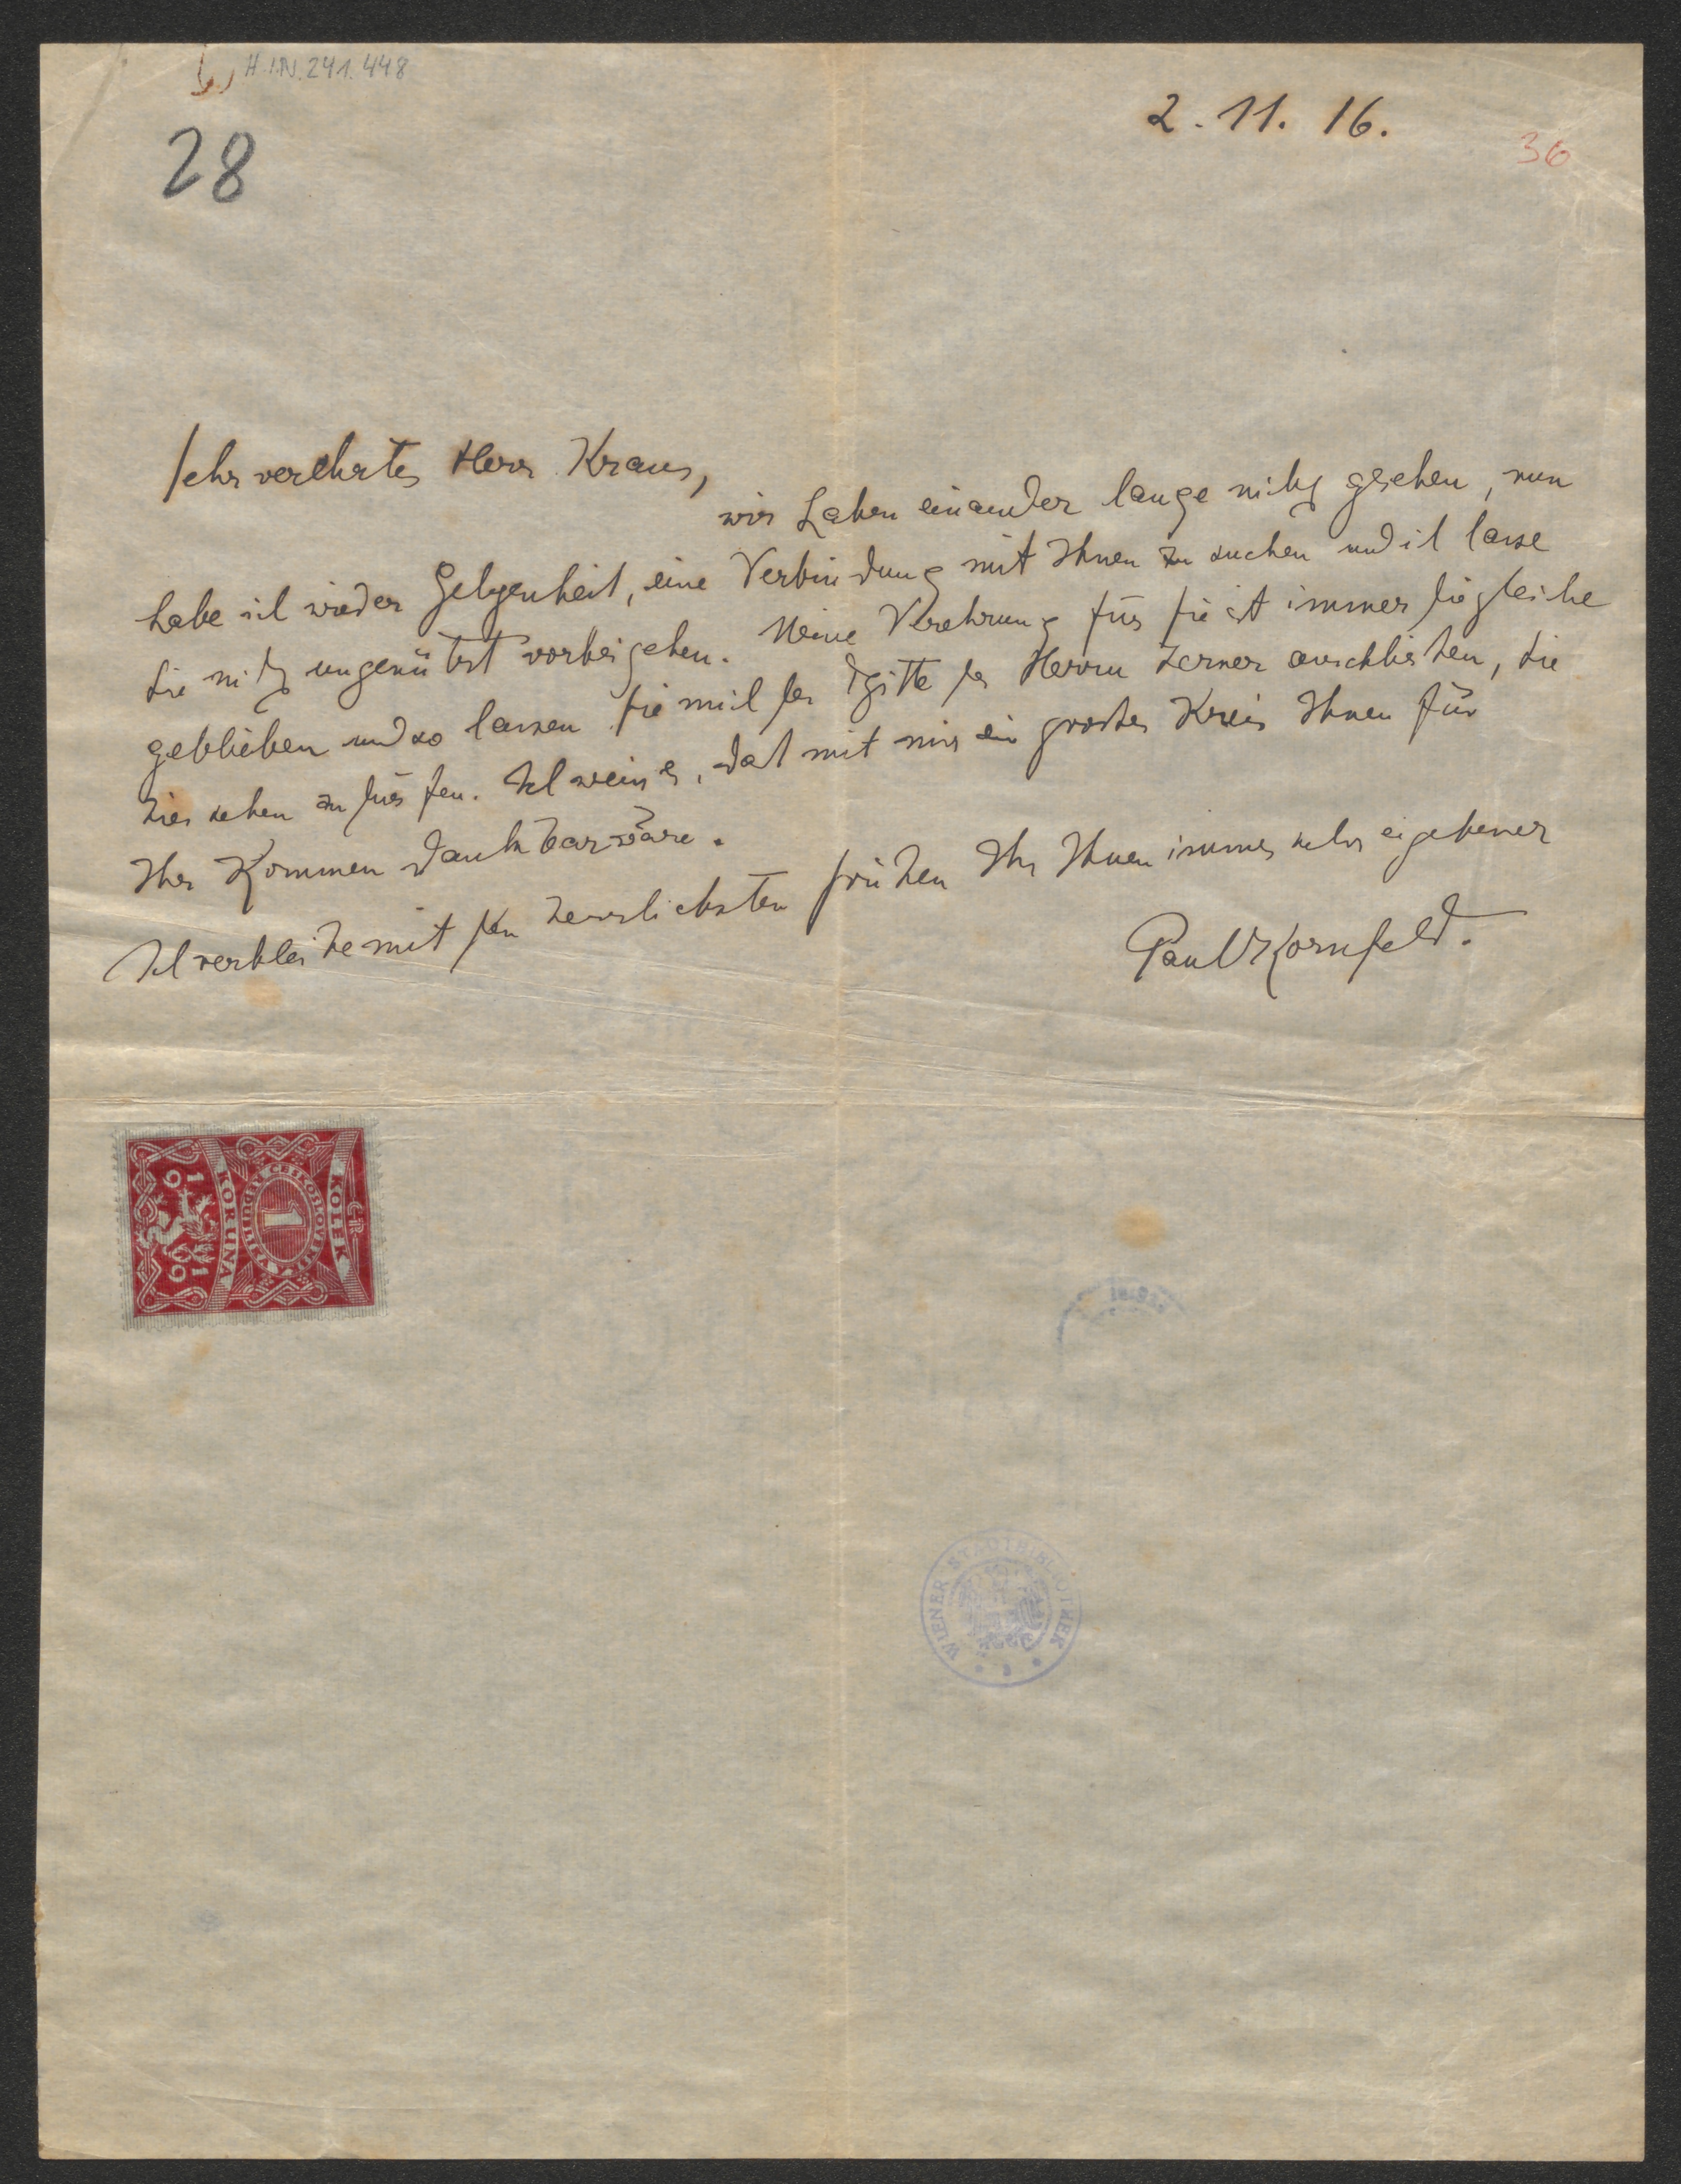 H.I.N. 241.448
28
2. 11. 16.
36
Sehr verehrter Herr Kraus,
wir haben einander lange nicht gesehen, nun
habe ich wieder Gelegenheit, eine Verbindung mit Ihnen zu suchen und ich lasse
sie nicht ungenützt vorbeigehen. Meine Verehrung für Sie ist immer die gleiche
geblieben und so lassen Sie mich der Bitte des Herrn Zerner anschließen, Sie
hier sehen zu dürfen. Ich weiss es, daß mit mir ein großer Kreis Ihnen für
Ihr Kommen dankbar wäre.
Ich verbleibe mit den herzlichsten Grüßen Ihr Ihnen immer sehr ergebener
Paul Kornfeld.
KOLEK
1
KORUNA
1919
WIENER STADTBIBLIOTHEK